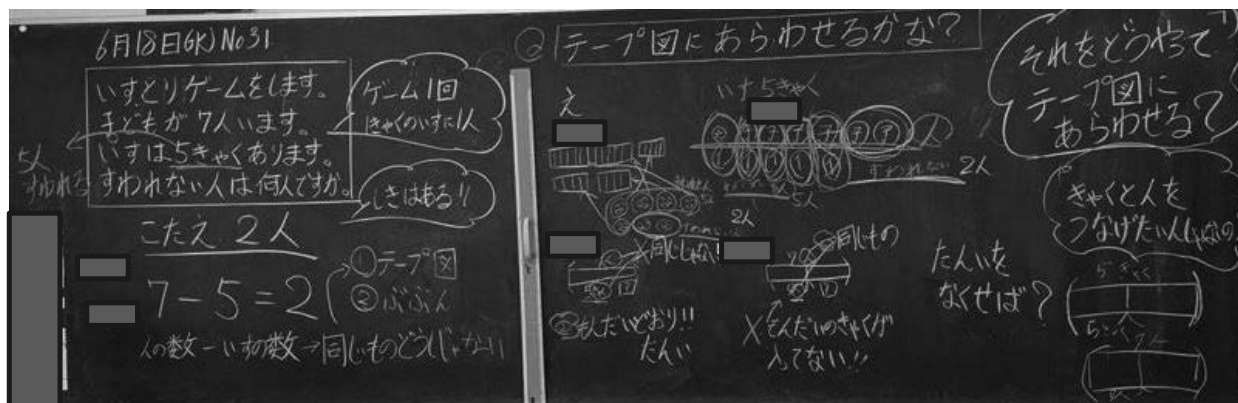 6月18日 No31
いすとりゲームをします。
子どもが7人います。
いすは5きゃくあります。
すわれない人は何人ですか。
5人
すわれる
ゲーム1回
1きゃくのいすに1人
しきはある!!
こたえ 2人
7-5=2
①テープ図
②ぶぶん
人の数-いすの数→同じものどうしじゃない
②テープ図にあらわせるかな?
え
いす5きゃく
すわれない
2人
5人
2人
同じじゃない
同じもの
もんだいどおり!!
たんい
×もんだいのきゃくが
入てない!!
それをどうやって
テープ図に
あらわせる?
きゃくと人を
つなげたいんじゃないの
たんいを
なくせば?
5きゃく